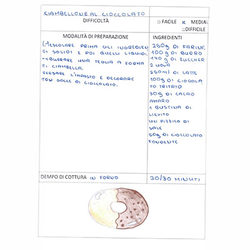 CIAMBELLONE AL CIOCCOLATO
DIFFICOLTÀ
□ FACILE × MEDIA
□ DIFFICILE
MODALITÀ DI PREPARAZIONE
MESCOLARE PRIMA GLI INGREDIEN
TI SOLIDI E POI QUELLI LIQUIDI.
UNA TEGLIA A FORMA
DI CIAMBELLA.
L'IMPASTO E DECORARE
CON DI CIOCCOLATO.
INGREDIENTI
280g DI FARINA
100g DI BURRO
170g DI ZUCCHERO
2 UOVA
DI LATTE
100g DI CIOCCOLA
TO TRITATO
50g DI CACAO
AMARO
1 BUSTINA DI
LIEVITO
UN PIZZICO DI
SALE
50g DI CIOCCOLATO
FONDENTE
TEMPO DI COTTURA IN FORNO
20/30 MINUTI